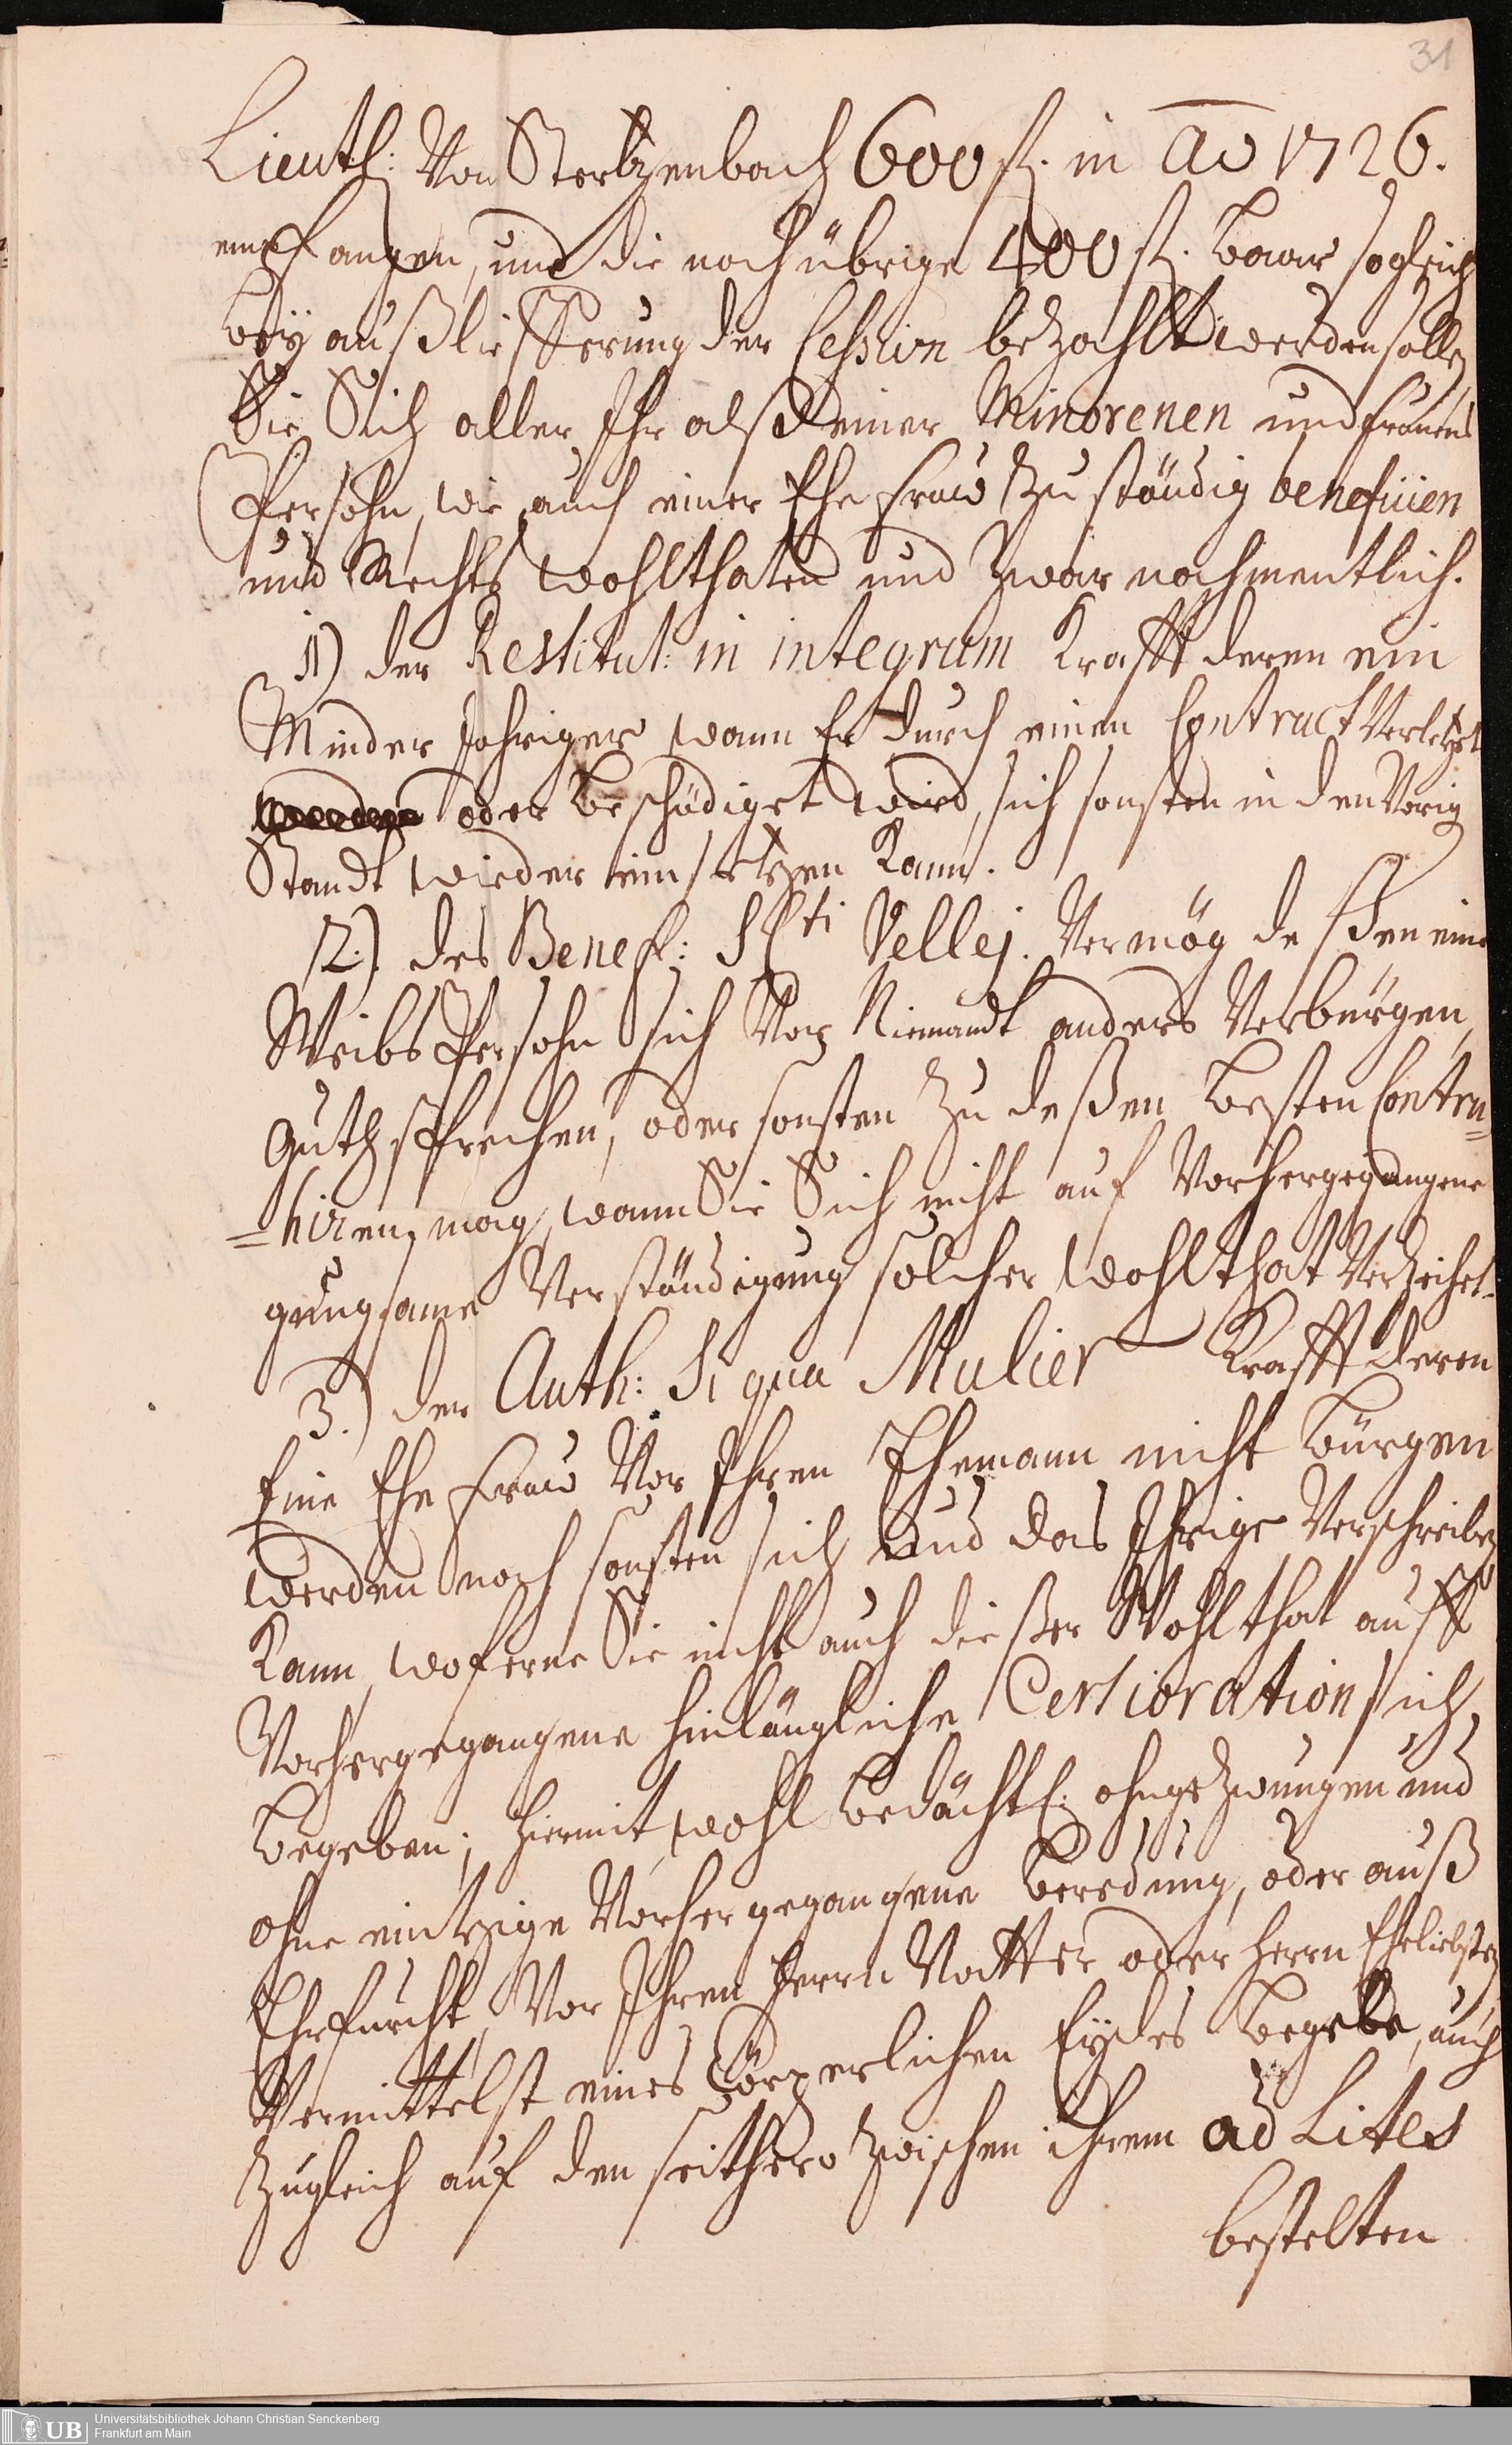 31
Lieuth: Von Stertzenbach 600 fl. in Ao 1726.
empfangen, und die noch übrige 400 fl. baar sogleich
bey außliefferung der Cession bezahlt werden sollen
Sie Sich aller Ihr alß einer Minorenen und frauens
Persohn, wie auch einer Ehe Frau zu ständig beneficien
und Rechts wohlthaten und zwar nahmentlich.
1) der Restitut: in integrum Krafft deren ein
Minder Jähriger wann Er durch einen Contract Verletzet
oder beschädiget wird, sich sonsten in den Vorig
Standt wieder einsetzen Kann.
2.) des Benef: SCti Vellej. Vermög deßen eine
Weibs Persohn sich Vor Niemandt anders Verbürgen,
guth sprechen, oder sonsten zu deßen besten Contra=
=hiren mag, wann Sie Sich nicht auf Vorhergegangene
gnugsame Verständigung solcher Wohlthat Verzeihet.
3.) der Auth: Si qua Mulier Krafft deren
Eine Ehe Frau Vor Ihren Ehemann nicht bürgen
werden noch sonsten sich und das Ihrige Verschreiben
Kann, woferne Sie nicht auch dießer Wohlthat auff
Vorhergegangene hinlängliche Certioration sich
begeben; hiermit wohl bedächtl: ohngezwungen und
ohne eintzige Vorhergegangene beredung, oder auß
Ehrfurcht Vor Ihren Herrn Vatter oder Herrn Eheliebsten
Vermittelst eines Cörperlichen Eydes begebe, auch
zugleich auf den seithero zwischen ihrem ad Lites
bestelten
UB
Universitätsbibliothek Johann Christian Senckenberg
Frankfurt am Main